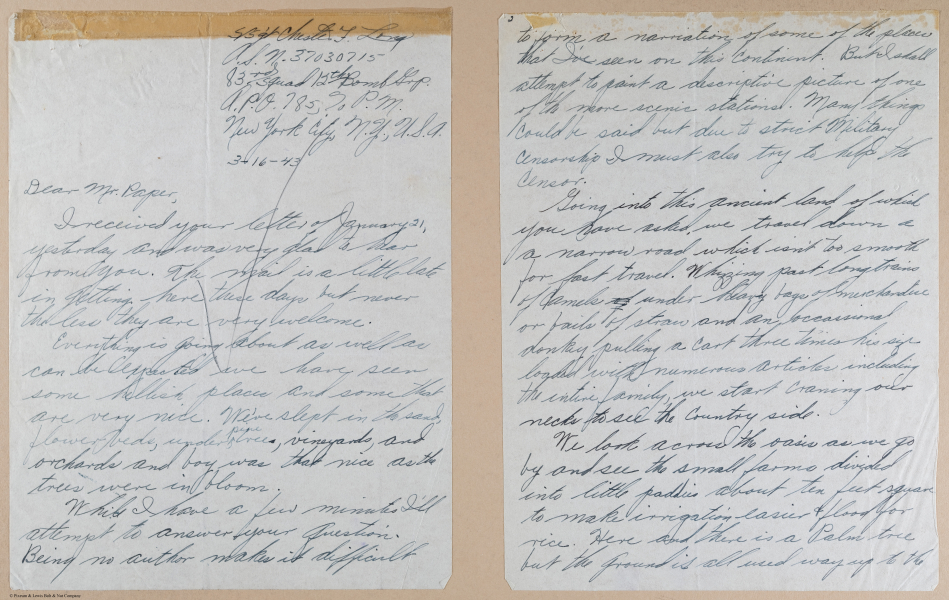 S/Sgt Chest. F. Long
A.S.N. 37030715
83rd Squad 12th Bomb Grp.
A.P.O. 785, % P.M.
New York City, N.Y., U.S.A.
3-16-43
Dear Mr. Paper,
I received your letter of January 21,
yesterday and was very glad to hear
from you. The mail is a little late
in getting here these days but never
the less they are very welcome.
Everything is going about as well as
can be expected we have seen
some hellish places and some that
are very nice. We've slept in the sand,
flower beds, under pine trees, vineyards, and
orchards and boy was that nice as the
trees were in bloom.
While I have a few minutes I'll
attempt to answer your question.
Being no author makes it difficult
2
to form a narration of some of the places
that I've seen on this continent. But I shall
attempt to paint a descriptive picture of one
of the more scenic stations. Many things
could be said but due to strict Military
censorship I must also try to help the
censor.
Going into this ancient land of which
you have asked, we travel down a
a narrow road which isn't too smooth
for fast travel. Whizzing past long trains
of Camels under heavy bags of merchandise
or bails of straw and an occassional
donkey pulling a cart three times his size
loaded with numerous articles including
the intire family, we start craning our
necks to see the country side.
We look across the oasis as we go
by and see the small farms divided
into little paddies about ten feet square
to make irrigation easier & food for
rice. Here and there is a Palm tree
but the ground is all used way up to the
© Pierson & Lewis Bah & You Company